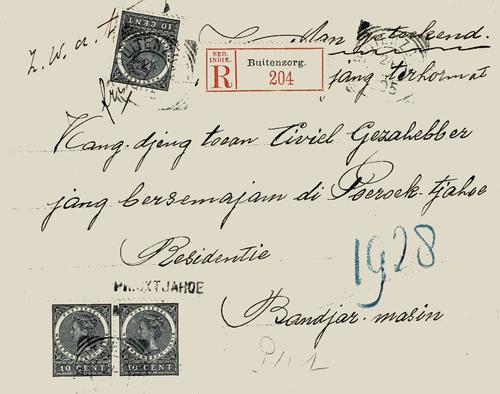 Z. w. a. t.
10 CENT
Aangeteekend.
NED. INDIE.
R
Buitenzorg.
204
jang terhormat
Kang djeng toean Civiel Gezahebber
jang bersemajam di Poeroek-tjahoe
Residentie
1928
POEROEKTJAHOE
Bandjar-masin
10 CENT
10 CENT